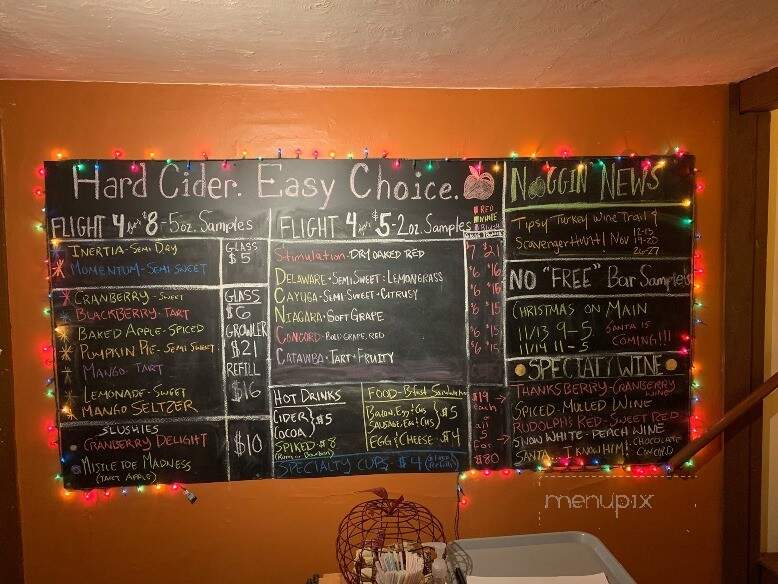 Hard Cider. Easy Choice.
FLIGHT 4 for $8 - 5oz. Samples
INERTIA - SEMI DRY
MOMENTUM - SEMI SWEET
GLASS
$5
CRANBERRY - SWEET
BLACKBERRY - TART
BAKED APPLE - SPICED
PUMPKIN PIE - SEMI SWEET
MANGO - TART
LEMONADE - SWEET
MANGO SELTZER
GLASS
$6
GROWLER
$21
REFILL
$16
SLUSHIES
CRANBERRY DELIGHT
MISTLETOE MADNESS
(TART APPLE)
$10
FLIGHT 4 for $5 - 2oz. Samples
RED
WHITE
BLUSH
Stimulation - DRY OAKED RED
7 $21
DELAWARE - SEMI SWEET : LEMONGRASS
$6 $16
CAYUGA - SEMI-SWEET - CITRUSY
$6 $15
NIAGARA - SOFT GRAPE
$6 $15
CONCORD - BOLD GRAPE, RED
$6 $15
CATAWBA - TART + FRUITY
$6 $15
HOT DRINKS
CIDER
COCOA
$5
SPIKED - $8
(Rum or Bourbon)
FOOD - Bfast Sandwiches
BACON, EGG & CHS
SAUSAGE, EGG & CHS
$5
EGG & CHEESE - $4
SPECIALTY CUPS - $4
NOGGIN NEWS
Tipsy Turkey Wine Trail &
Scavenger Hunt! Nov
12-13
19-20
26-27
NO "FREE" Bar Samples
CHRISTMAS ON MAIN
11/13 9-5
11/14 11-5
SANTA IS
COMING!!!
SPECIALTY WINE
THANKSBERRY - CRANBERRY WINE
SPICED - MULLED WINE
RUDOLPH'S RED - SWEET RED
SNOW WHITE - PEACH WINE
SANTA... I KNOW HIM! - CHOCOLATE CONCORD
$19
each
or
all
5
for
$80
menupix